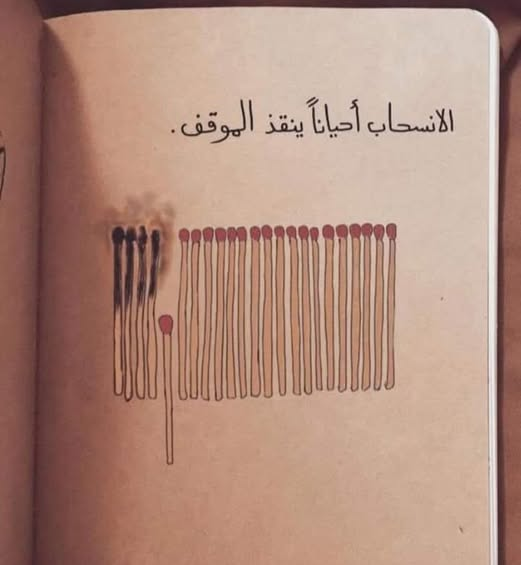 الانسحاب أحياناً ينقذ الموقف.